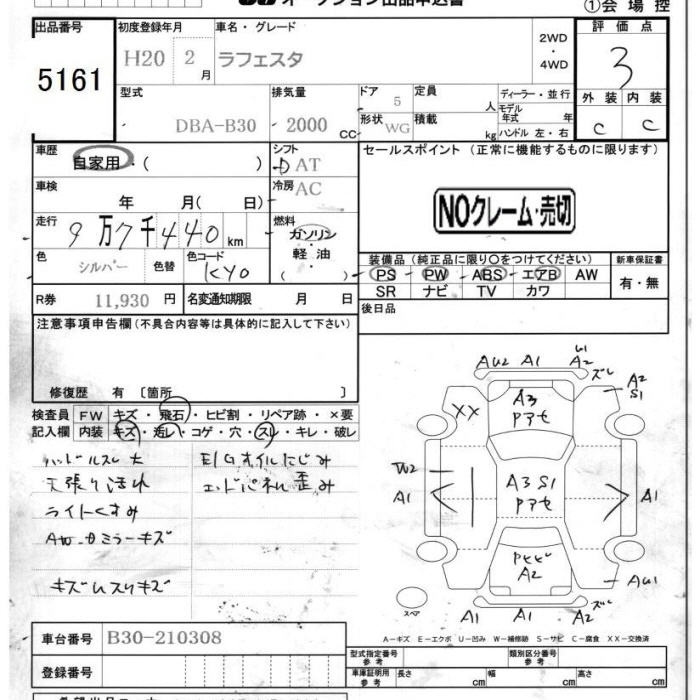 オークション出品申込書
①会場控
出品番号 5161
初度登録年月 H20 2月
車名・グレード ラフェスタ
2WD・4WD
評価点 3
外装 内装
C C
型式 DBA-B30
排気量 2000 CC
ドア 5
形状 WG
定員 人
積載 kg
ディーラー・並行
モデル年式 年
ハンドル 左・右
車歴 自家用・( )
シフト DAT
セールスポイント (正常に機能するものに限ります)
車検 年 月( 日)
冷房 AC
NOクレーム・売切
走行 9万7千440km
燃料 ガソリン・軽油・( )
色 シルバー 色替
色コード KY0
装備品 (純正品に限り〇をつけてください)
新車保証書
PS PW ABS エアB AW
有・無
SR ナビ TV カワ
R券 11,930 円
名変通知期限 月 日
後日品
注意事項申告欄(不具合内容等は具体的に記入して下さい)
修復歴 有 〔箇所 〕
検査員記入欄
FW キズ・飛石・ヒビ割・リペア跡・×要
内装 キズ・汚レ・コゲ・穴・スレ・キレ・破レ
ハンドルスレ大
E/Gオイルにじみ
天張り汚れ
エンドパネル歪み
ライトくすみ
キズUスリキズ
AU2 A1 U1 A2 ズレ
A2 S1
XX
A3 Pアセ
W2
A1
A3 S1 Pアセ
A1
A2
AU1
スペア
A1 A1 A2 ズレ
A-キズ E-エクボ U-凹み W-補修跡 S-サビ C-腐食 XX-交換済
車台番号 B30-210308
登録番号
型式指定番号 参考
類別区分番号 参考
車庫証明用 参考 長さ cm 幅 cm 高さ cm